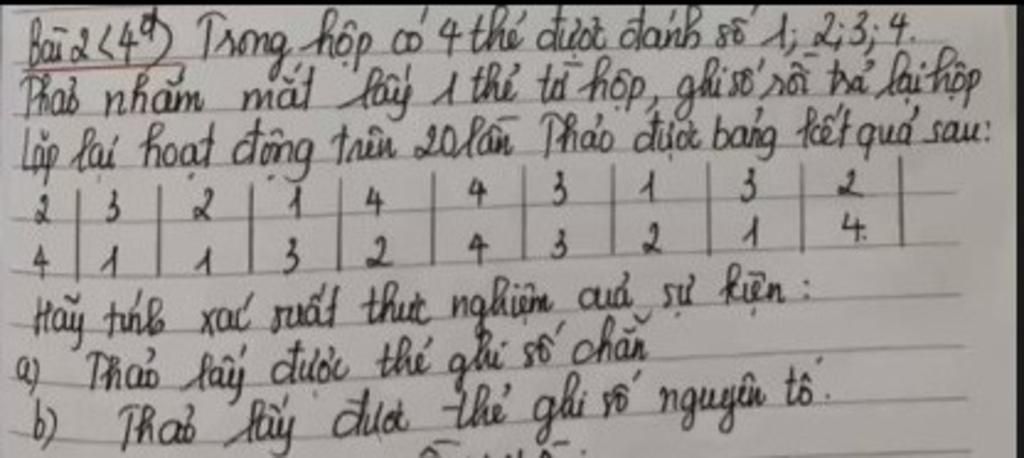 Bài 2 (4đ) Trong hộp có 4 thẻ được đánh số 1; 2; 3; 4.
Thảo nhắm mắt lấy 1 thẻ từ hộp, ghi số rồi trả lại hộp
Lặp lại hoạt động trên 20 lần Thảo được bảng kết quả sau:
2 | 3 | 2 | 1 | 4 | 4 | 3 | 1 | 3 | 2
4 | 1 | 1 | 3 | 2 | 4 | 3 | 2 | 1 | 4
Hãy tính xác suất thực nghiệm của sự kiện:
a) Thảo lấy được thẻ ghi số chẵn
b) Thảo lấy được thẻ ghi số nguyên tố.